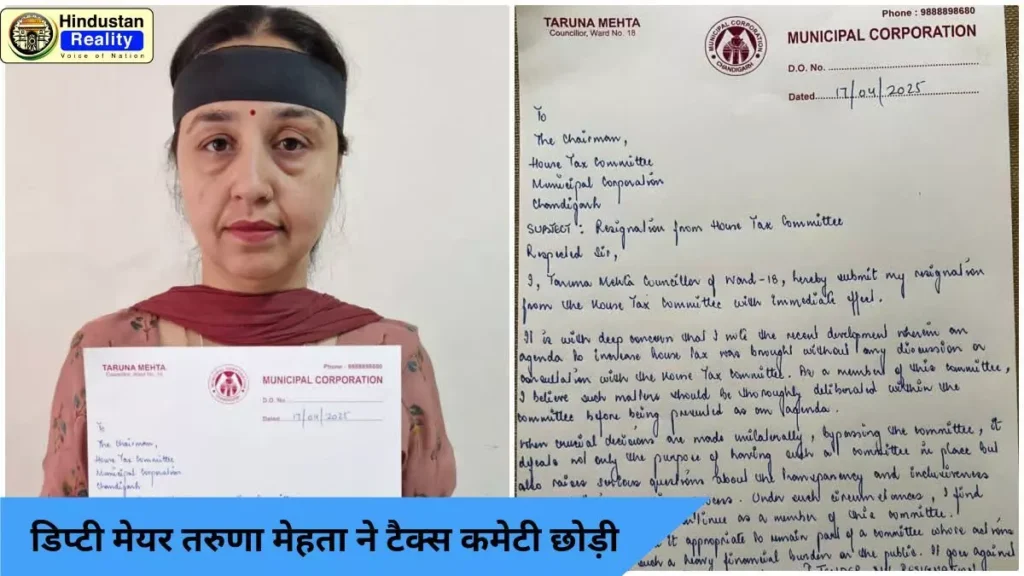 Hindustan
Reality
Voice of Nation
TARUNA MEHTA
Councillor, Ward No. 18
Phone : 9888898680
MUNICIPAL CORPORATION
D.O. No.
Dated 17/04/2025
To
The Chairman,
House Tax Committee
Municipal Corporation
Chandigarh
TARUNA MEHTA
Councillor, Ward No. 18
Phone : 9888898680
MUNICIPAL CORPORATION
CHANDIGARH
MUNICIPAL CORPORATION
D.O. No.
Dated 17/04/2025
To
The Chairman,
House Tax Committee
Municipal Corporation
Chandigarh
SUBJECT : Resignation from House Tax Committee
Respected Sir,
I, Taruna Mehta Councillor of Ward-18, hereby submit my resignation
from the House Tax Committee with immediate effect.
It is with deep concern that I note the recent development wherein an
agenda to increase house tax was brought without any discussion or
consultation with the House Tax Committee. As a member of this committee,
I believe such matters should be thoroughly deliberated within the
committee before being presented as an agenda.
When crucial decisions are made unilaterally, bypassing the committee, it
defeats not only the purpose of having such a committee in place but
also raises serious questions about the transparency and inclusiveness
Under such circumstances, I find
continue as a member of this committee.
it appropriate to remain part of a committee whose actions
such a heavy financial burden on the public. It goes against
डिप्टी मेयर तरुणा मेहता ने टैक्स कमेटी छोड़ी